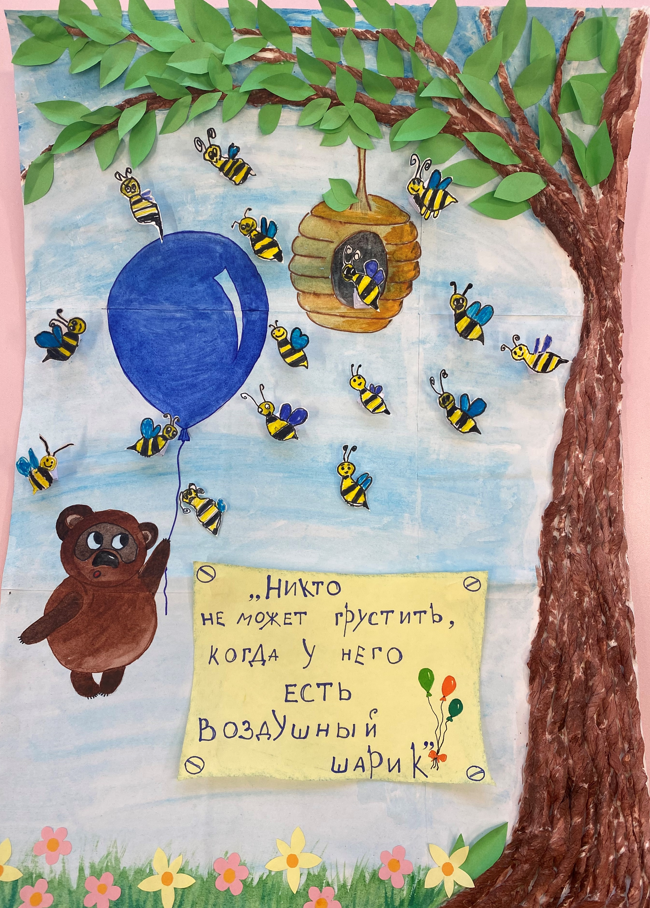 „Никто
не может грустить,
когда у него
есть
воздушный
шарик”